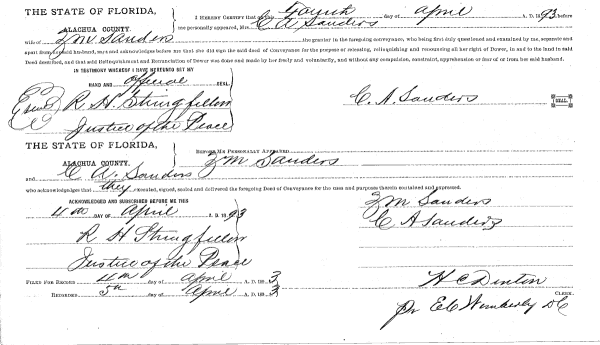 THE STATE OF FLORIDA,
ALACHUA COUNTY.
I HEREBY CERTIFY that on this Fourth day of April A. D. 1893, before
me personally appeared, Mrs. C A Sanders
wife of Z M Sanders the grantor in the foregoing conveyance, who being first duly questioned and examined by me, separate and
apart from said husband, says and acknowledges before me that she did sign the said deed of Conveyance for the purpose of releasing, relinquishing and renouncing all her right of Dower, in and to the land in said
Deed described, and that said Relinquishment and Renunciation of Dower was done and made by her freely and voluntarily, and without any compulsion, constraint, apprehension or fear of or from her said husband.
IN TESTIMONY WHEREOF I HAVE HEREUNTO SET MY
HAND AND official SEAL.
R. H. Stringfellow
Justice of the Peace
C. A. Sanders
SEAL.
THE STATE OF FLORIDA,
ALACHUA COUNTY.
BEFORE ME PERSONALLY APPEARED Z M Sanders
and C A. Sanders
who acknowledges that they executed, signed, sealed and delivered the foregoing Deed of Conveyance for the uses and purposes therein contained and expressed.
ACKNOWLEDGED AND SUBSCRIBED BEFORE ME THIS
4th DAY OF April A. D. 1893
Z M Sanders
C A Sanders
R H Stringfellow
Justice of the Peace
FILED FOR RECORD 4th day of April A. D. 1893
RECORDED 5th day of April A. D. 1893
H C Denton
CLERK.
Pr E C Wimberly D C